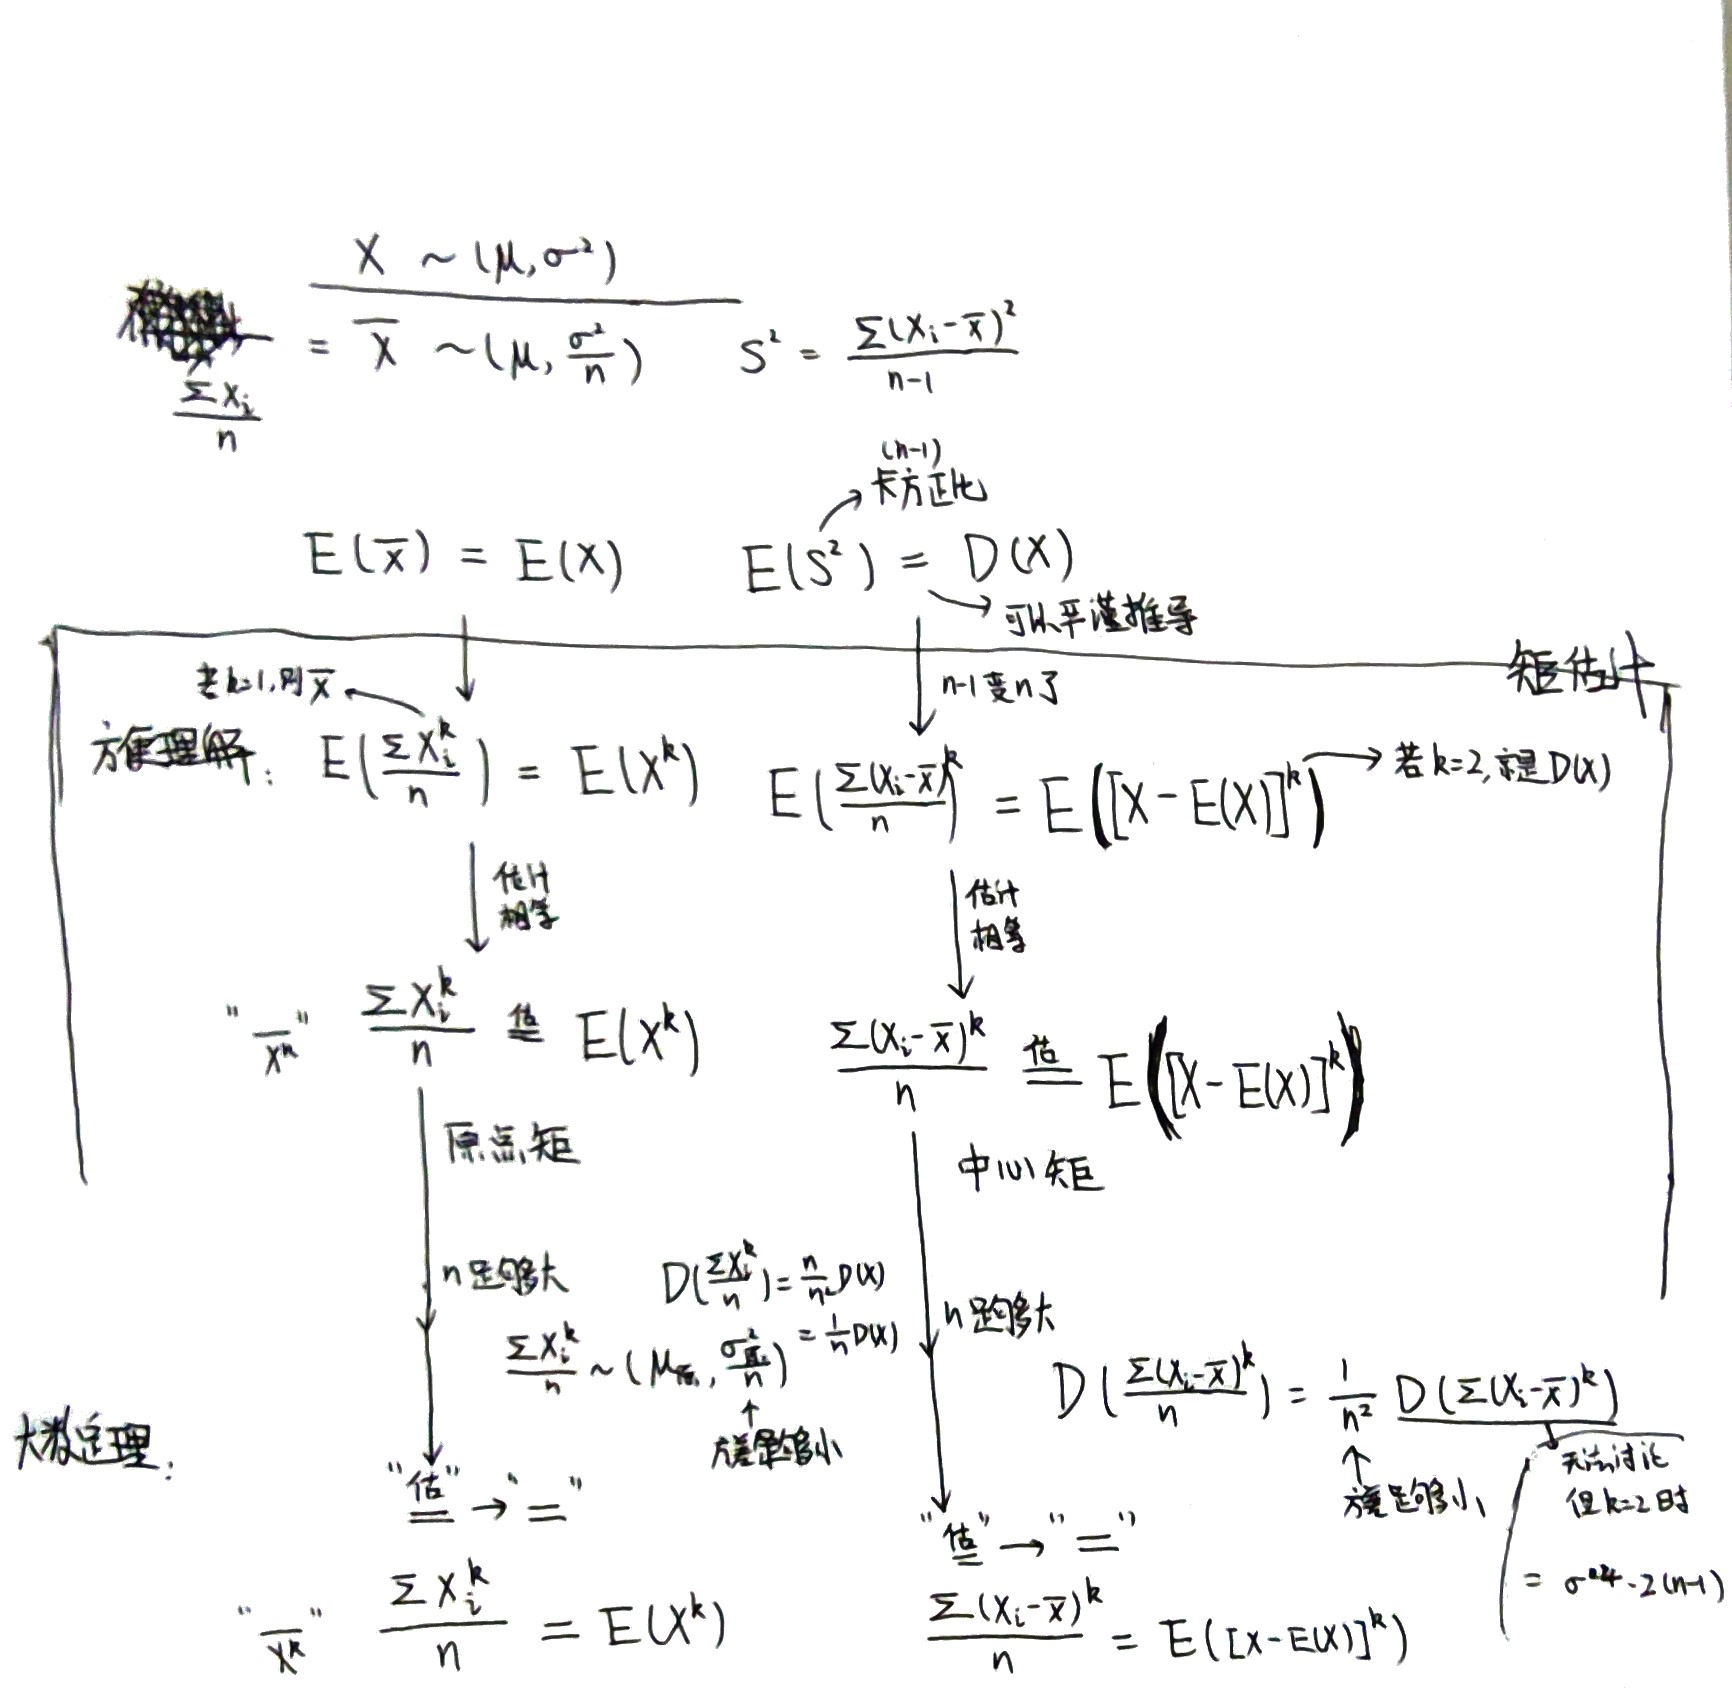 X ~ (μ, σ²)
ΣXᵢ/n = X̄ ~ (μ, σ²/n) S² = Σ(Xᵢ-X̄)²/(n-1)
(n-1)
卡方正比
E(X̄) = E(X) E(S²) = D(X)
可以严谨推导
矩估计
若k=1,则X̄ n-1变n了
方便理解: E(ΣXᵢᵏ/n) = E(Xᵏ) E(Σ(Xᵢ-X̄)ᵏ/n) = E([X-E(X)]ᵏ) 若k=2,就是D(X)
估计 估计
相等 相等
"X̄ᵏ" ΣXᵢᵏ/n 估= E(Xᵏ) Σ(Xᵢ-X̄)ᵏ/n 估= E([X-E(X)]ᵏ)
原点矩 中心矩
n足够大 D(ΣXᵢᵏ/n) = n/n² D(X) n足够大
= 1/n D(X)
ΣXᵢᵏ/n ~ (μ
方差足够小
D(Σ(Xᵢ-X̄)ᵏ/n) = 1/n² D(Σ(Xᵢ-X̄)ᵏ)
方差足够小 无法讨论
但k=2时
= σ⁴·2(n-1)
大数定理:
"估=" → "=" "估=" → "="
"X̄ᵏ" ΣXᵢᵏ/n = E(Xᵏ) Σ(Xᵢ-X̄)ᵏ/n = E([X-E(X)]ᵏ)